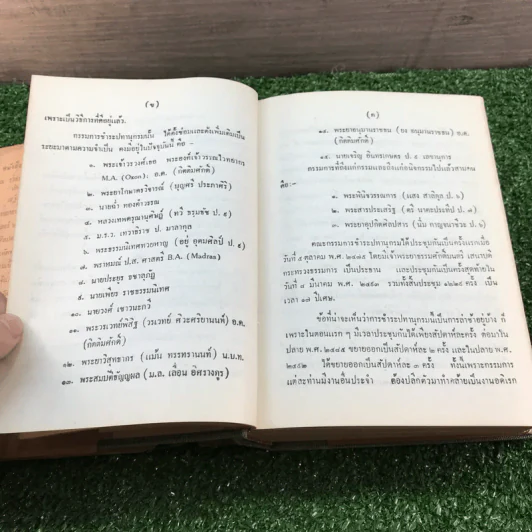 (ข)
เพราะเป็นวิธีการที่ดีอยู่แล้ว.
กรรมการชำระปทานุกรมนั้น ได้ตั้งซ่อมและเพิ่มเติมเป็น
ระยะมาตามความจำเป็น คงมีอยู่ในปัจจุบันนี้ คือ –
๑. พระเจ้าวรวงศ์เธอ พระองค์เจ้าวรรณไวทยากร
M.A. (Oxon); อ.ด. (กิตติมศักดิ์)
๒. พระยาโกษากรวิจารณ์ (บุญศรี ประภาศิริ)
๓. นายฉ่ำ ทองคำวรรณ
๔. หลวงเทพดรุณานุศิษฏ์ (ทวี ธรมธัช ป. ๙)
๕. ม.ร.ว. เทวาธิราช ป. มาลากุล
๖. พระธรรมนิเทศทวยหาญ (อยู่ อุดมศิลป์ ป. ๙)
๗. พราหมณ์ ป.ส. ศาสตรี B.A. (Madras)
๘. นายประยูร
๙. นายเพียร ราชธรรมนิเทศ
๑๐. นายวงศ์ เชาวนะกวี
๑๑. พระวรเวทย์พิสิฐ (วรเวทย์ ศิวะศริยานนท์) อ.ด.
(กิตติมศักดิ์)
๑๒. พระยาวิสุทธากร (แม้น ทรรทรานนท์) น.บ.ท.
๑๓. พระสมบัติธัญญผล (ม.ล. เลื่อน อิศรางกูร)
(ค)
๑๔. พระยาอนุมานราชธน (ยง อนุมานราชธน) อ.ด.
(กิตติมศักดิ์)
๑๕. นายเจริญ อินทรเกษตร ป. ๙ เลขานุการ
กรรมการที่ถึงแก่กรรมแต่
คือ :–
๑. พระพินิจวรรณการ (แสง สาลิตุล ป. ๖)
๒. พระสารประเสริฐ (ตรี นาคะประทีป ป. ๗)
๓. พระยาอุปกิตศิลปสาร (นิ่ม กาญจนาชีวะ ป. ๖)
คณะกรรมการชำระปทานุกรมได้ประชุมกันเป็นครั้งแรกเมื่อ
วันที่ ๕ ตุลาคม พ.ศ. ๒๔๗๕ โดยมีเจ้าพระยาธรรมศักดิ์มนตรี เสนาบดี
กระทรวงธรรมการ เป็นประธาน และประชุมกันเป็นครั้งสุดท้ายใน
วันที่ ๘ มีนาคม พ.ศ. ๒๔๙๓ รวมทั้งสิ้นประชุม ๑๒๙๙ ครั้ง เป็น
เวลา ๑๗ ปีเศษ.
ข้อที่น่าจะเห็นว่าการชำระปทานุกรมนี้เป็นการล่าช้าอยู่บ้าง ก็
เพราะในตอนแรก ๆ มีเวลาประชุมกันได้เพียงสัปดาห์ละครั้ง ต่อมาใน
ปลาย พ.ศ. ๒๔๘๕ ขยายออกเป็นสัปดาห์ละ ๒ ครั้ง และในปลาย พ.ศ.
๒๔๙๒ ได้ขยายออกเป็นสัปดาห์ละ ๓ ครั้ง ทั้งนี้เพราะกรรมการ
แต่ละท่านมีงานอื่นประจำ ต้องปลีกตัวมาทำคล้ายเป็นงานอดิเรก